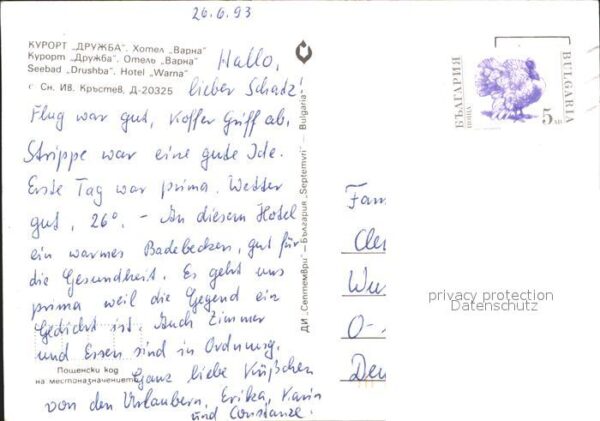 26.6.93
КУРОРТ „ДРУЖБА". Хотел „Варна"
Курорт „Дружба". Отель „Варна"
Seebad „Drushba". Hotel „Warna"
Сн. Ив. Кръстев, Д-20325
Hallo,
lieber Schatz!
Flug war gut, Koffer Griff ab,
Strippe war eine gute Ide.
Erste Tag war prima. Wetter
gut, 26°. - In diesem Hotel
ein warmes Badebecken, gut für
die Gesundheit. Es geht uns
prima weil die Gegend ein
Gedicht ist. Auch Zimmer
und Essen sind in Ordnung.
Ganz liebe Küßchen
von den Urlaubern, Erika, Karin
und Constanze.
Пощенски код
на местоназначението
ДИ „Септември" — България „Septemvri" — Bulgaria
БЪЛГАРИЯ
ПОЩА
5 ЛВ
BULGARIA
Fam
Cle
Wu
O-
Deu
privacy protection
Datenschutz